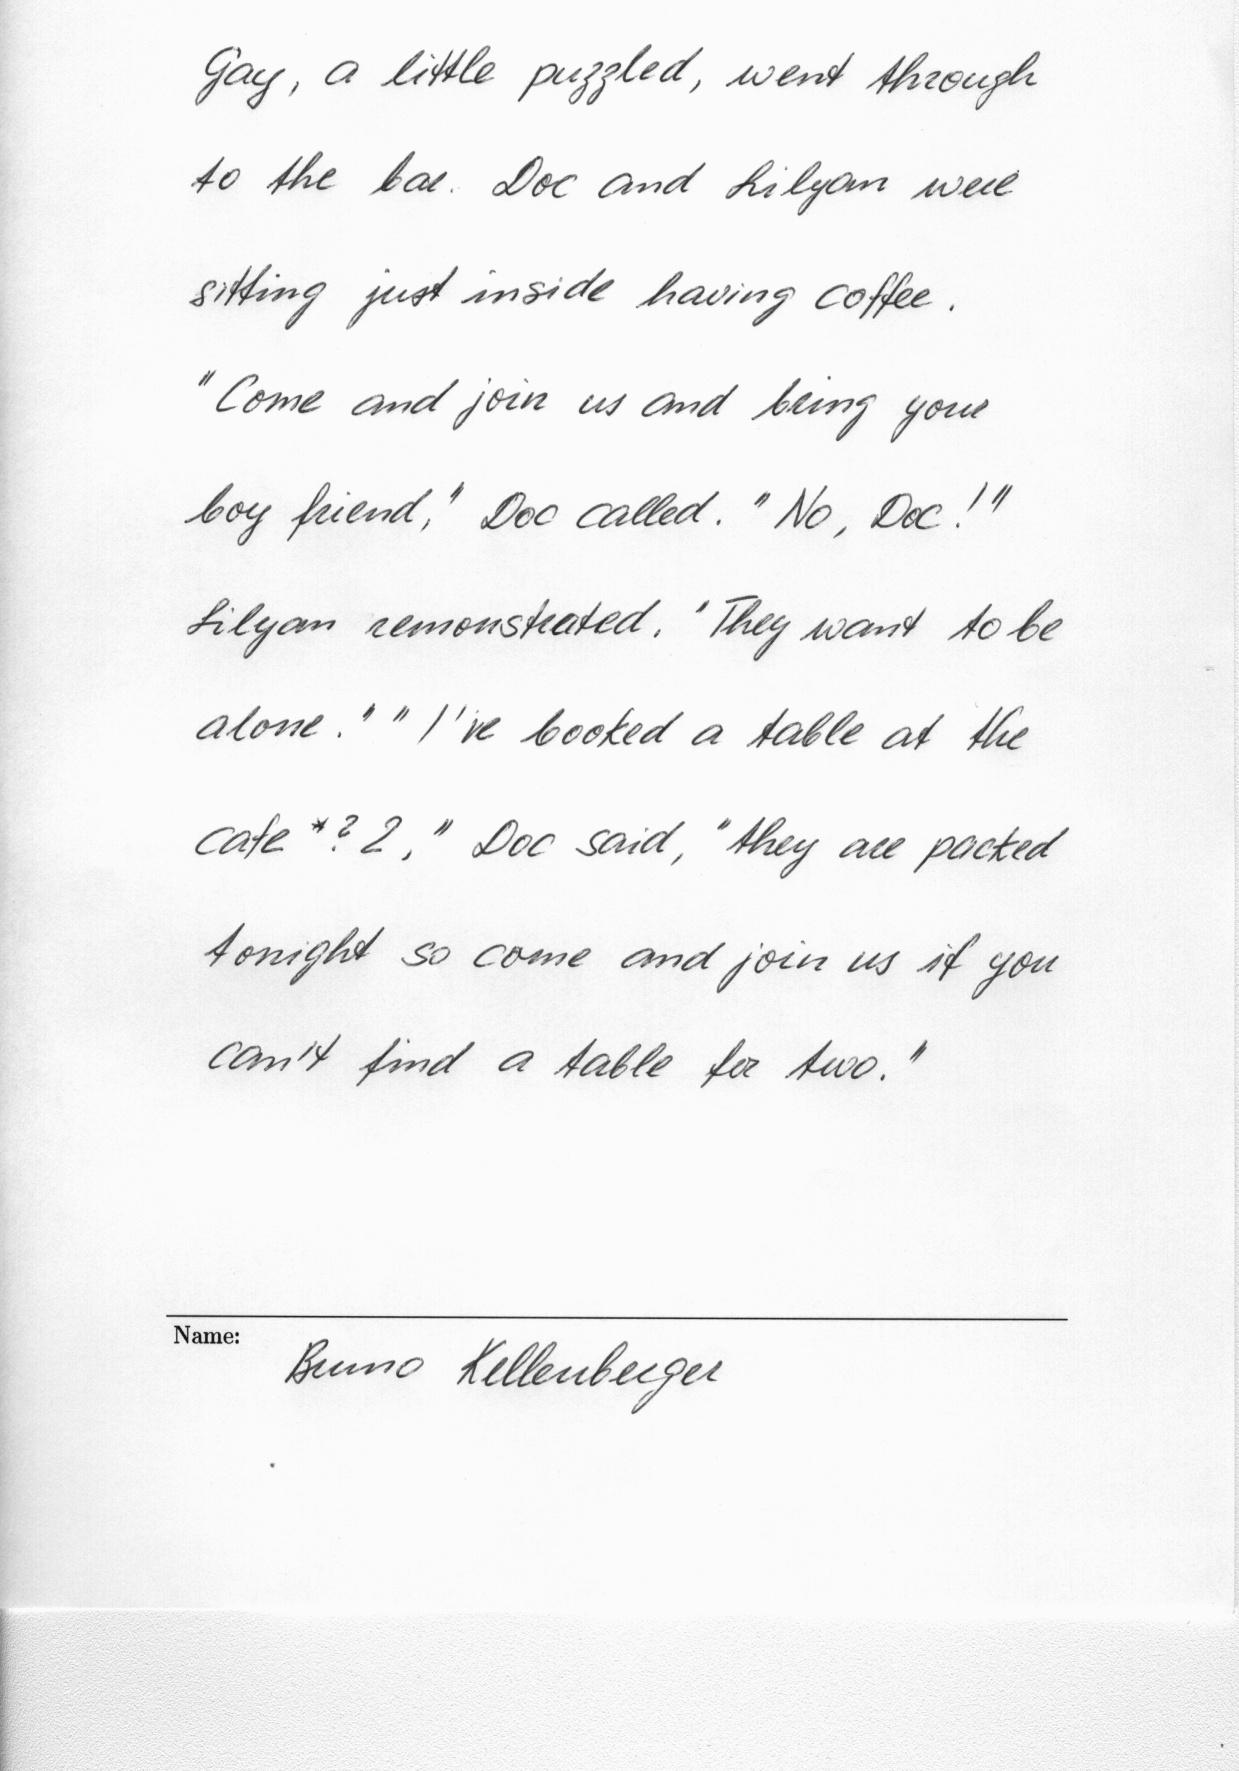 Gay, a little puzzled, went through
to the bar. Doc and Lilyan were
sitting just inside having coffee.
"Come and join us and bring your
boy friend," Doc called. "No, Doc!"
Lilyan remonstrated. "They want to be
alone." "I've booked a table at the
cafe *?2," Doc said, "they are packed
tonight so come and join us if you
can't find a table for two."
Name:
Bruno Kellenberger